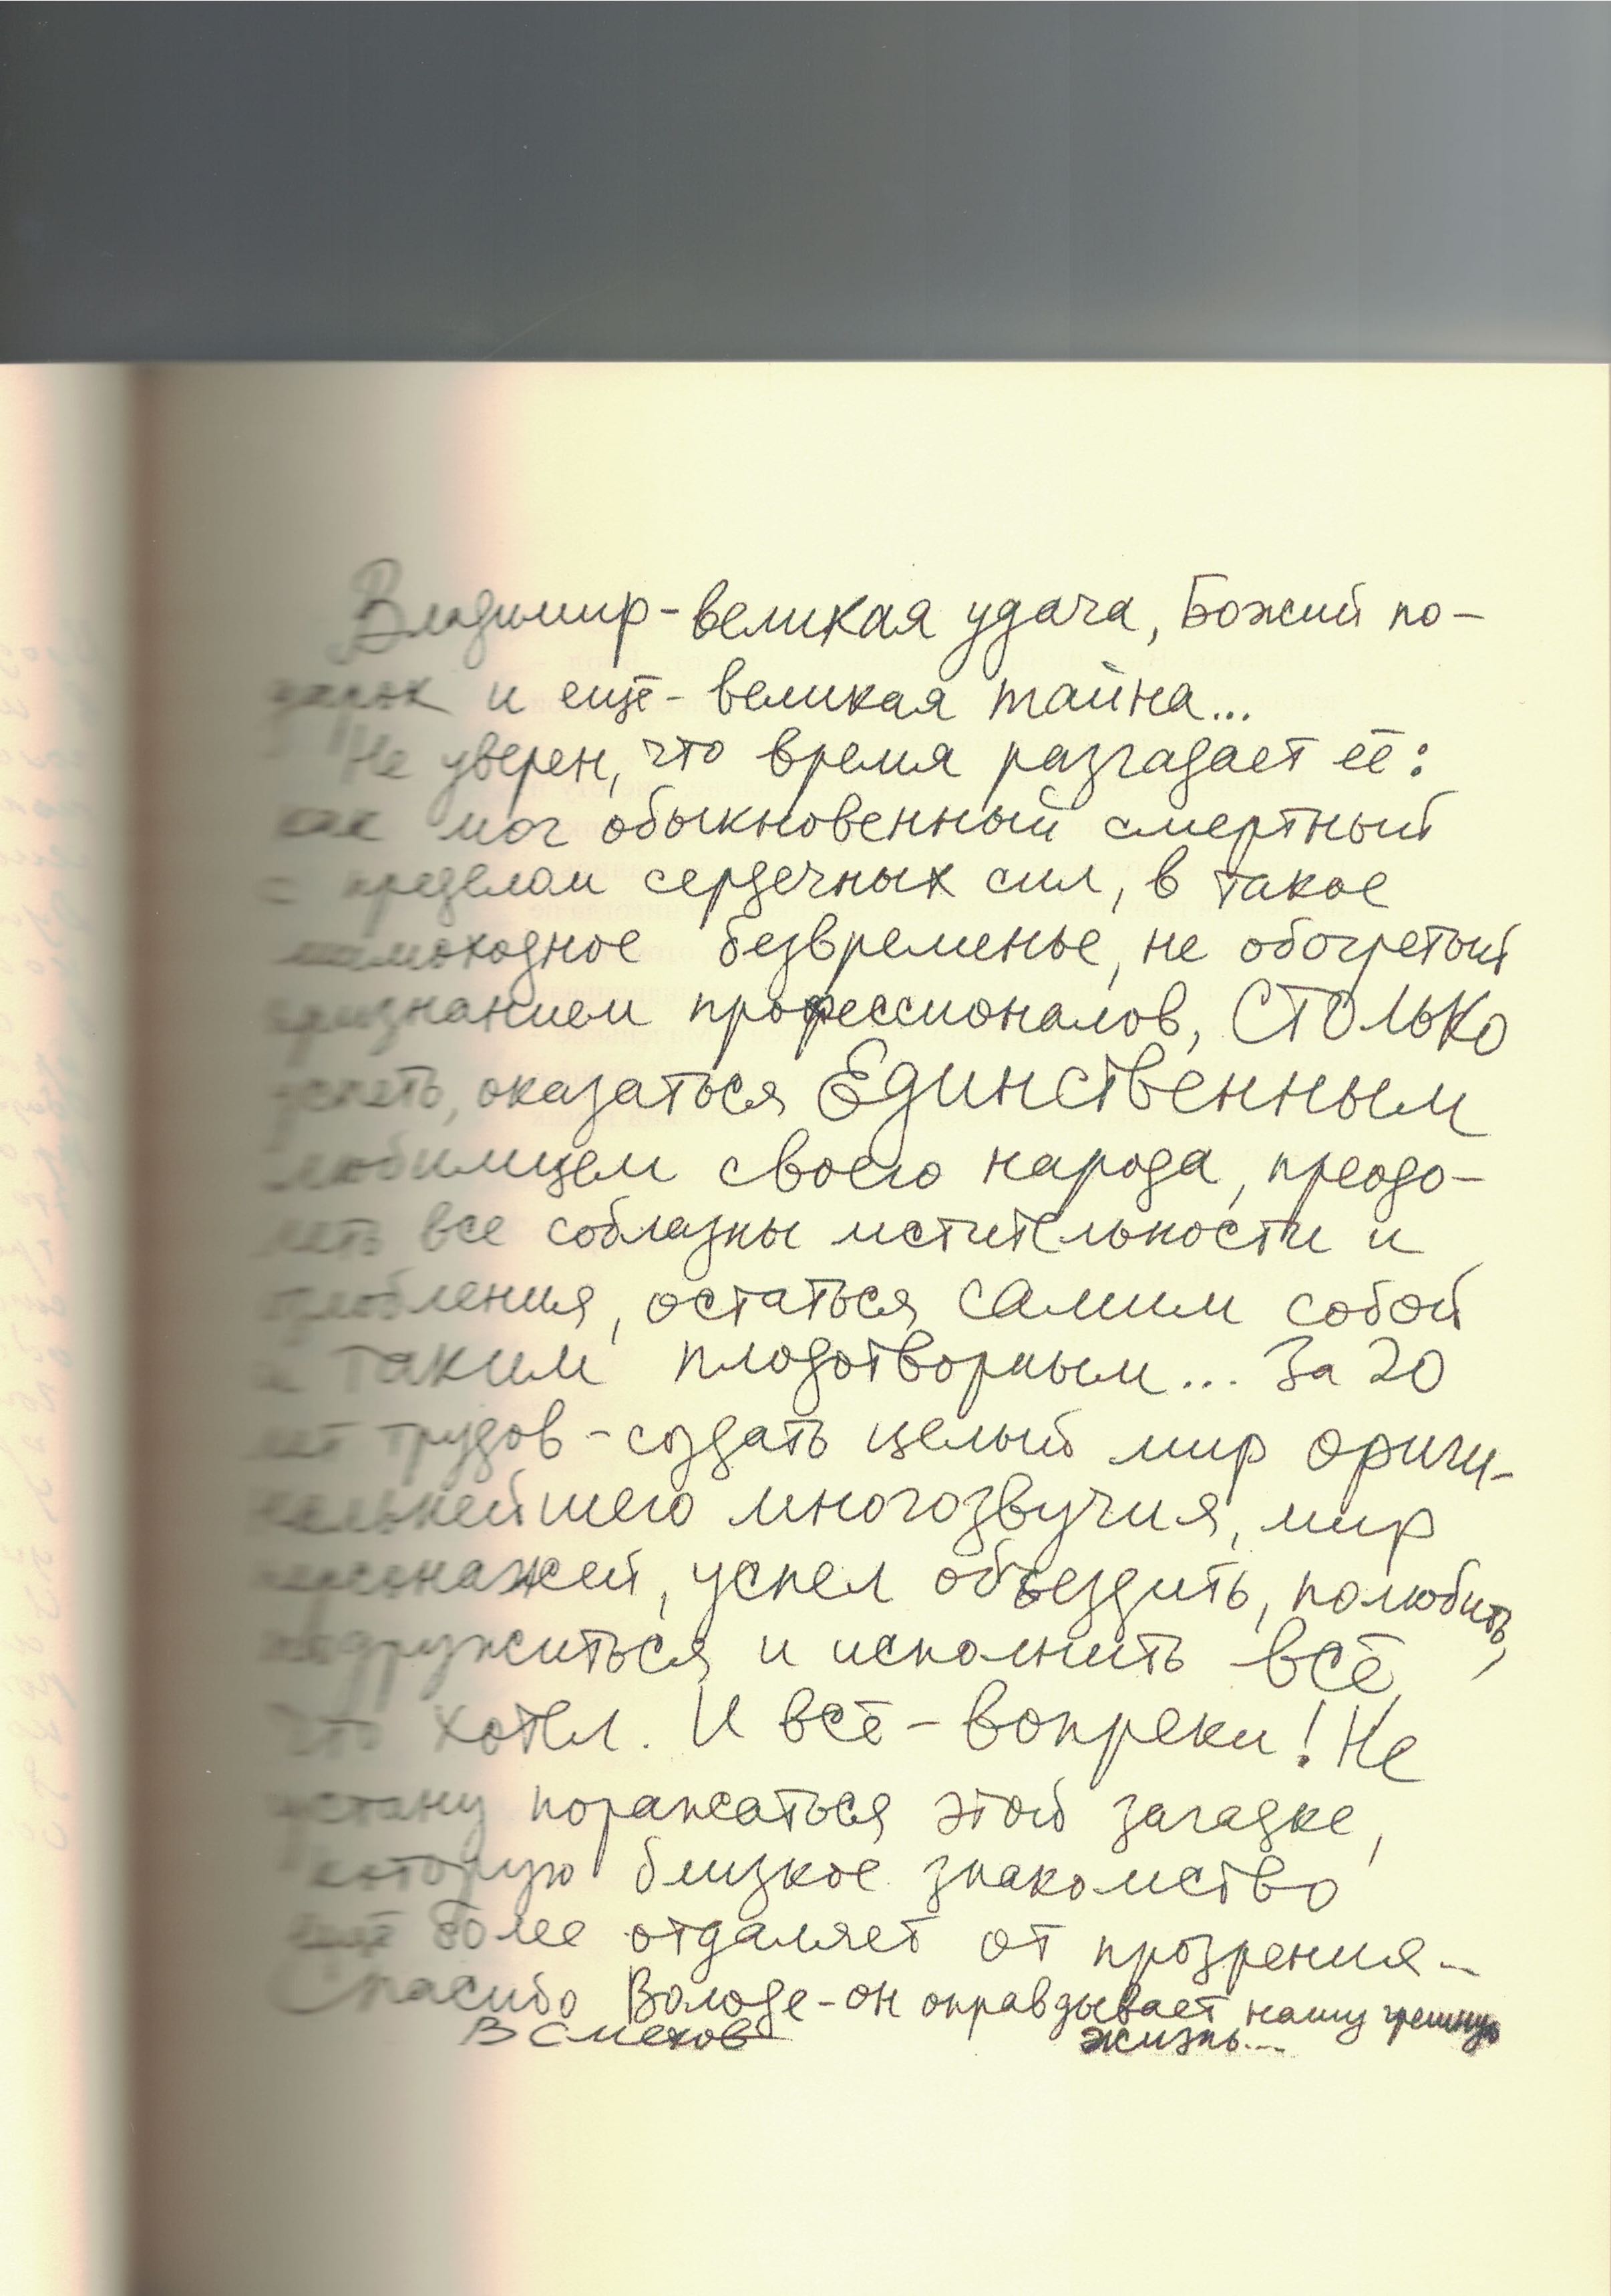 Владимир - великая удача, Божий по-
дарок и ещё - великая тайна...
Не уверен, что время разгадает её:
как мог обыкновенный смертный
с пределом сердечных сил, в такое
безвременье, не обогретый
признанием профессионалов, СТОЛЬКО
успеть, оказаться Единственным
любимцем своего народа, преодо-
леть все соблазны мстительности и
озлобления, остаться самим собой
и таким плодотворным... За 20
лет трудов - создать целый мир ориги-
нальнейшего многозвучия, мир
персонажей, успел объездить, полюбить,
подружиться и исполнить всё,
что хотел. И всё - вопреки! Не
устану поражаться этой загадке,
которую близкое знакомство
ещё более отдаляет от прозрения...
Спасибо Володе - он оправдывает нашу грешную
жизнь...
В Смехов